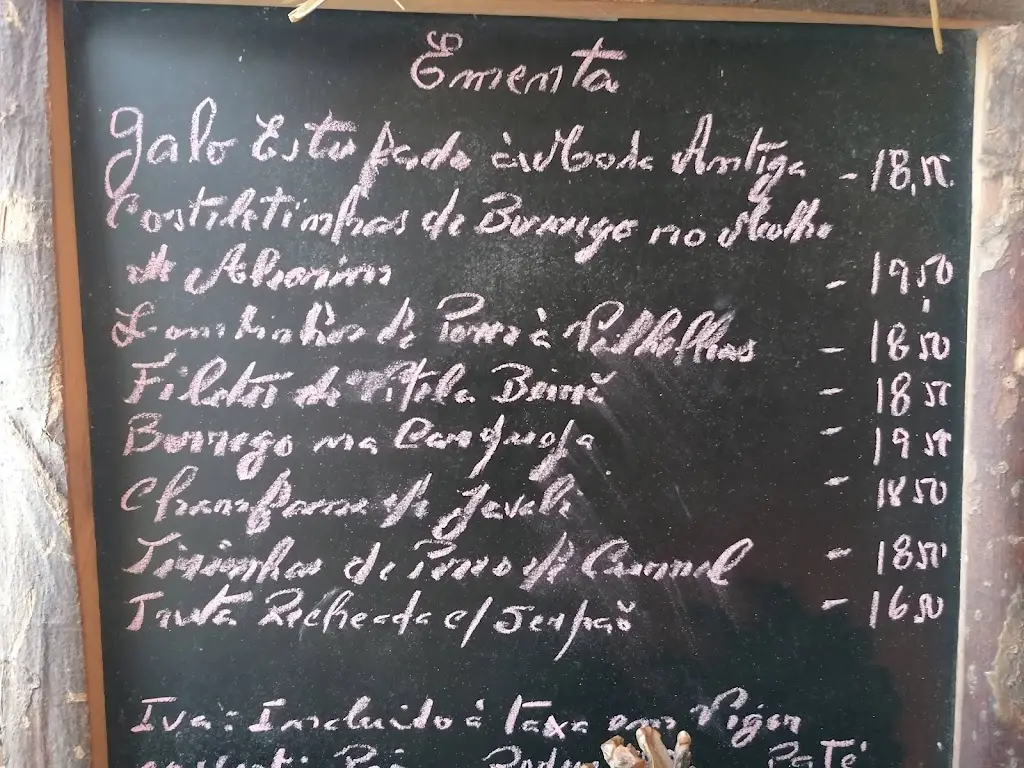 Ementa
Galo Estufado à Moda Antiga - 18,50
Costeletinhas de Borrego no Molho
de Alecrim - 19,50
Lombinhos de Porco à - 18 50
Filetes de Vitela Beirã - 18 50
Borrego na Caçarola - 19 50
Chanfana de Javali - 18 50
Tirinhas de Porco de Coentrada - 18 50
Truta Recheada c/ Serpão - 16 50
Iva: Incluido à taxa em Vigor